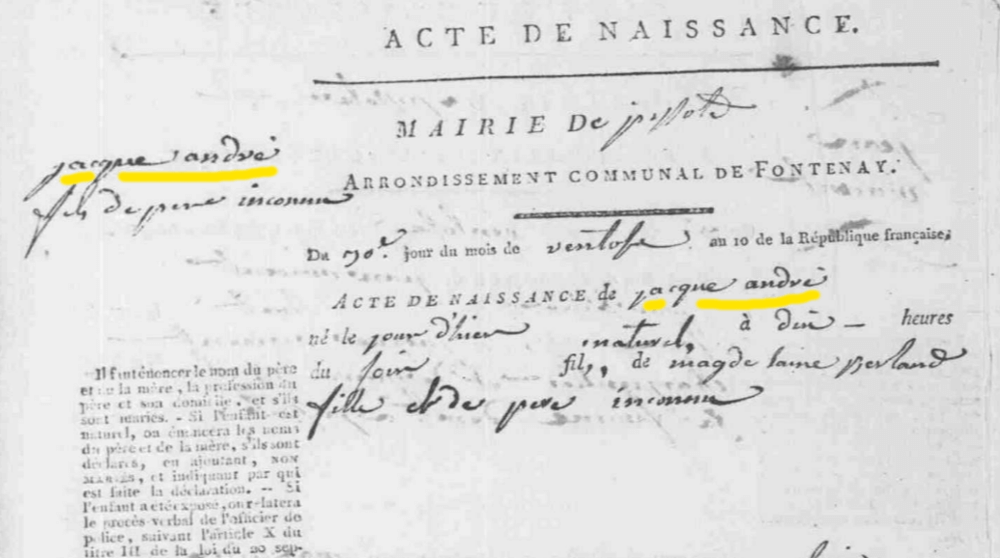 ACTE DE NAISSANCE.
MAIRIE De pissotte
ARRONDISSEMENT COMMUNAL DE FONTENAY.
jacque andré
fils de pere inconnu
Du jour du mois de ventose au 10 de la République française,
ACTE DE NAISSANCE de jacque andré
né le jour d'hier à dix heures
du soir naturel, fils de magdelaine Berland
fille et de pere inconnu
Il faut énoncer le nom du père
et de la mère, la profession du
père et son domicile, et s'ils
sont mariés. - Si l'enfant est
naturel, on énoncera les noms
du père et de la mère, s'ils sont
déclarés, en ajoutant, NON
MARIÉS, et indiquant par qui
est faite la déclaration. - Si
l'enfant a été exposé, on relatera
le procès verbal de l'officier de
police, suivant l'article X du
titre III de la loi du 20 sep-